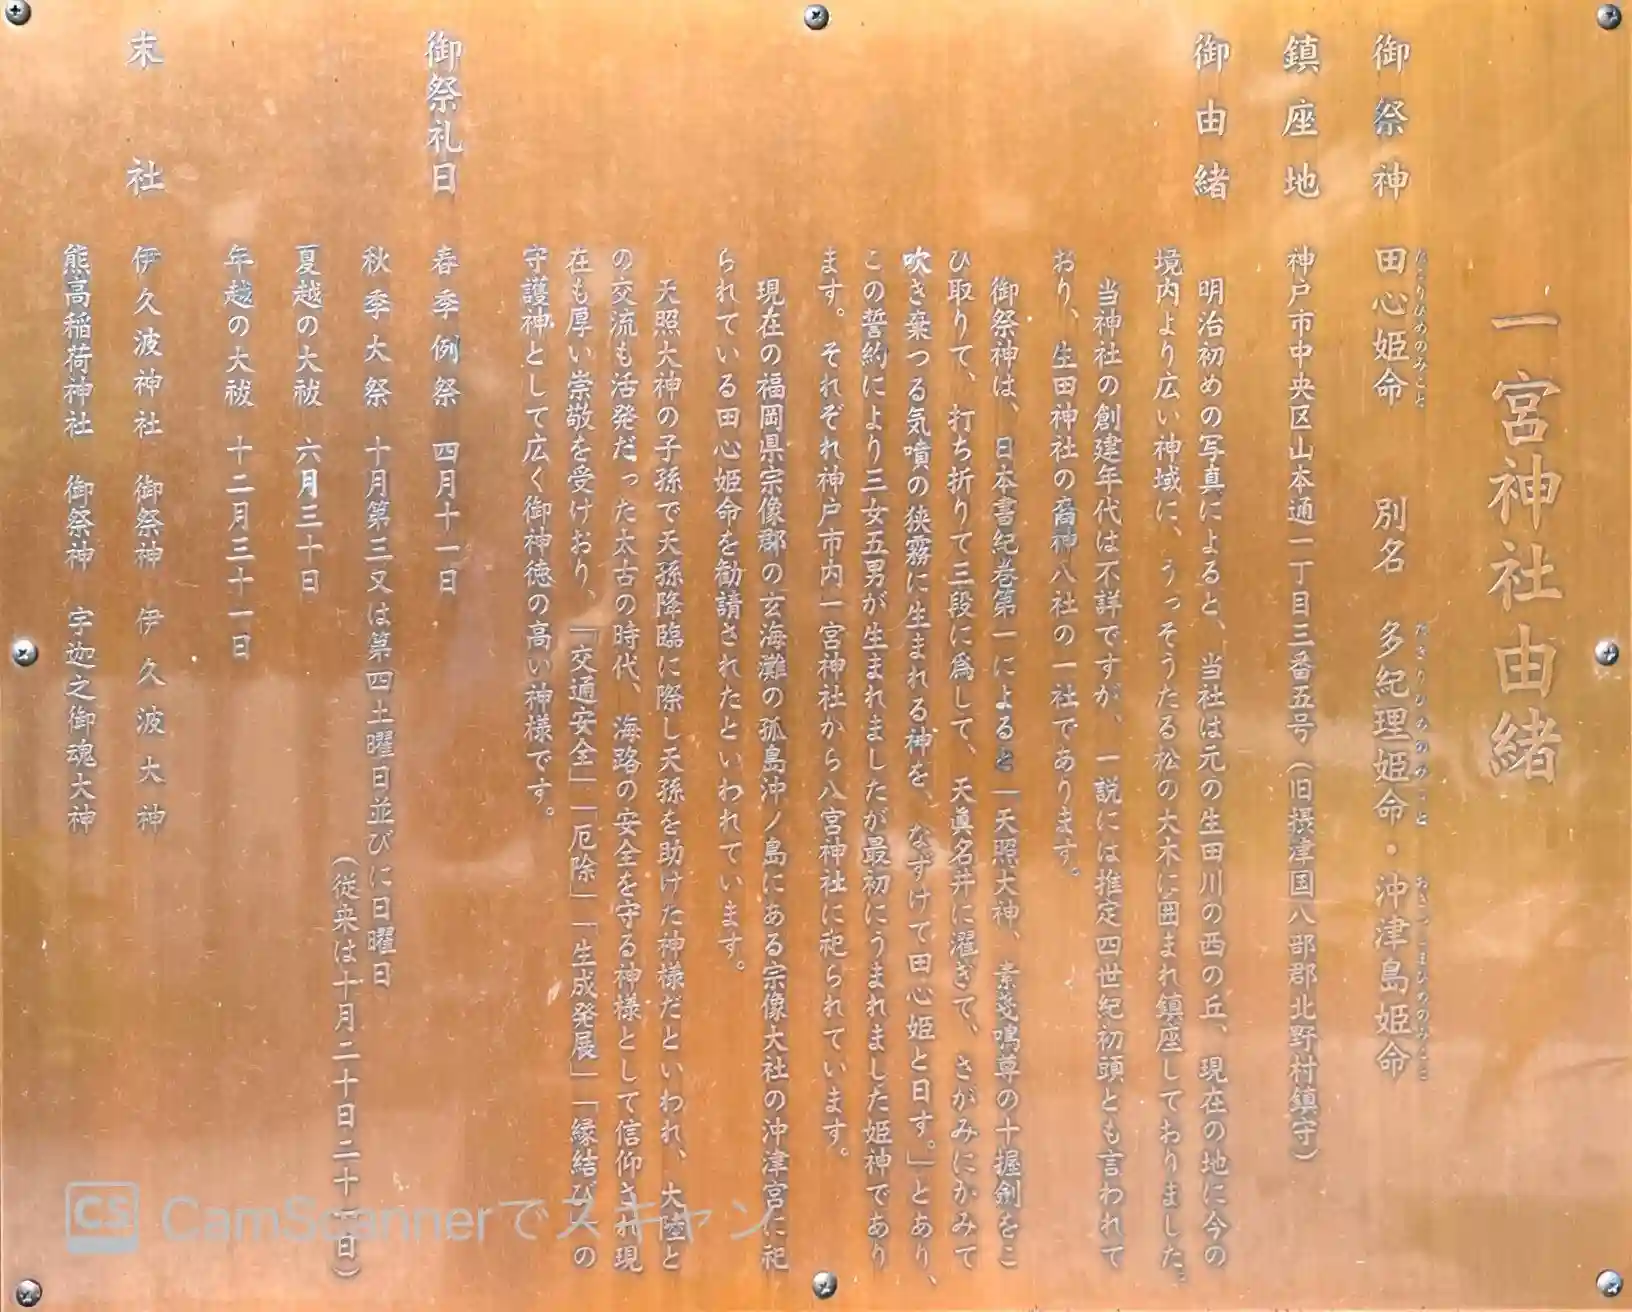 一宮神社由緒
御祭神 田心姫命 別名 多紀理姫命・沖津島姫命
鎮座地 神戸市中央区山本通一丁目三番五号（旧摂津国八部郡北野村鎮守）
御由緒 明治初めの写真によると、当社は元の生田川の西の丘、現在の地に今の
境内より広い神域に、うっそうたる松の大木に囲まれ鎮座しておりました。
当神社の創建年代は不詳ですが、一説には推定四世紀初頭とも言われて
おり、生田神社の裔神八社の一社であります。
御祭神は、日本書紀巻第一によると「天照大神、素戔嗚尊の十握剣をこ
ひ取りて、打ち折りて三段に為して、天眞名井に濯ぎて、さがみにかみて
吹き棄つる気噴の狭霧に生まれる神を、なずけて田心姫と日す。」とあり、
この誓約により三女五男が生まれましたが最初にうまれました姫神であり
ます。それぞれ神戸市内一宮神社から八宮神社に祀られています。
現在の福岡県宗像郡の玄海灘の孤島沖ノ島にある宗像大社の沖津宮に祀
られている田心姫命を勧請されたといわれています。
天照大神の子孫で天孫降臨に際し天孫を助けた神様だといわれ、大陸と
の交流も活発だった太古の時代、海路の安全を守る神様として信仰され現
在も厚い崇敬を受けおり、「交通安全」「厄除」「生成発展」「縁結び」の
守護神として広く御神徳の高い神様です。
御祭礼日 春季例祭 四月十一日
秋季大祭 十月第三又は第四土曜日並びに日曜日
（従来は十月二十日二十一日）
夏越の大祓 六月三十日
年越の大祓 十二月三十一日
末社 伊久波神社 御祭神 伊久波大神
熊高稲荷神社 御祭神 宇迦之御魂大神
CS CamScannerでスキャン